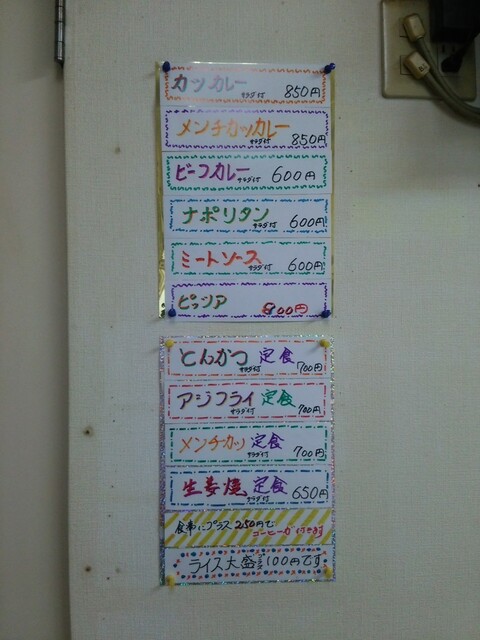 カツカレー サラダ付 850円
メンチカツカレー サラダ付 850円
ビーフカレー サラダ付 600円
ナポリタン サラダ付 600円
ミートソース サラダ付 600円
ピッツア 800円
とんかつ定食 サラダ付 700円
アジフライ定食 サラダ付 700円
メンチカツ定食 サラダ付 700円
生姜焼定食 サラダ付 650円
食事にプラス250円で
コーヒーが付きます
ライス大盛プラス100円です